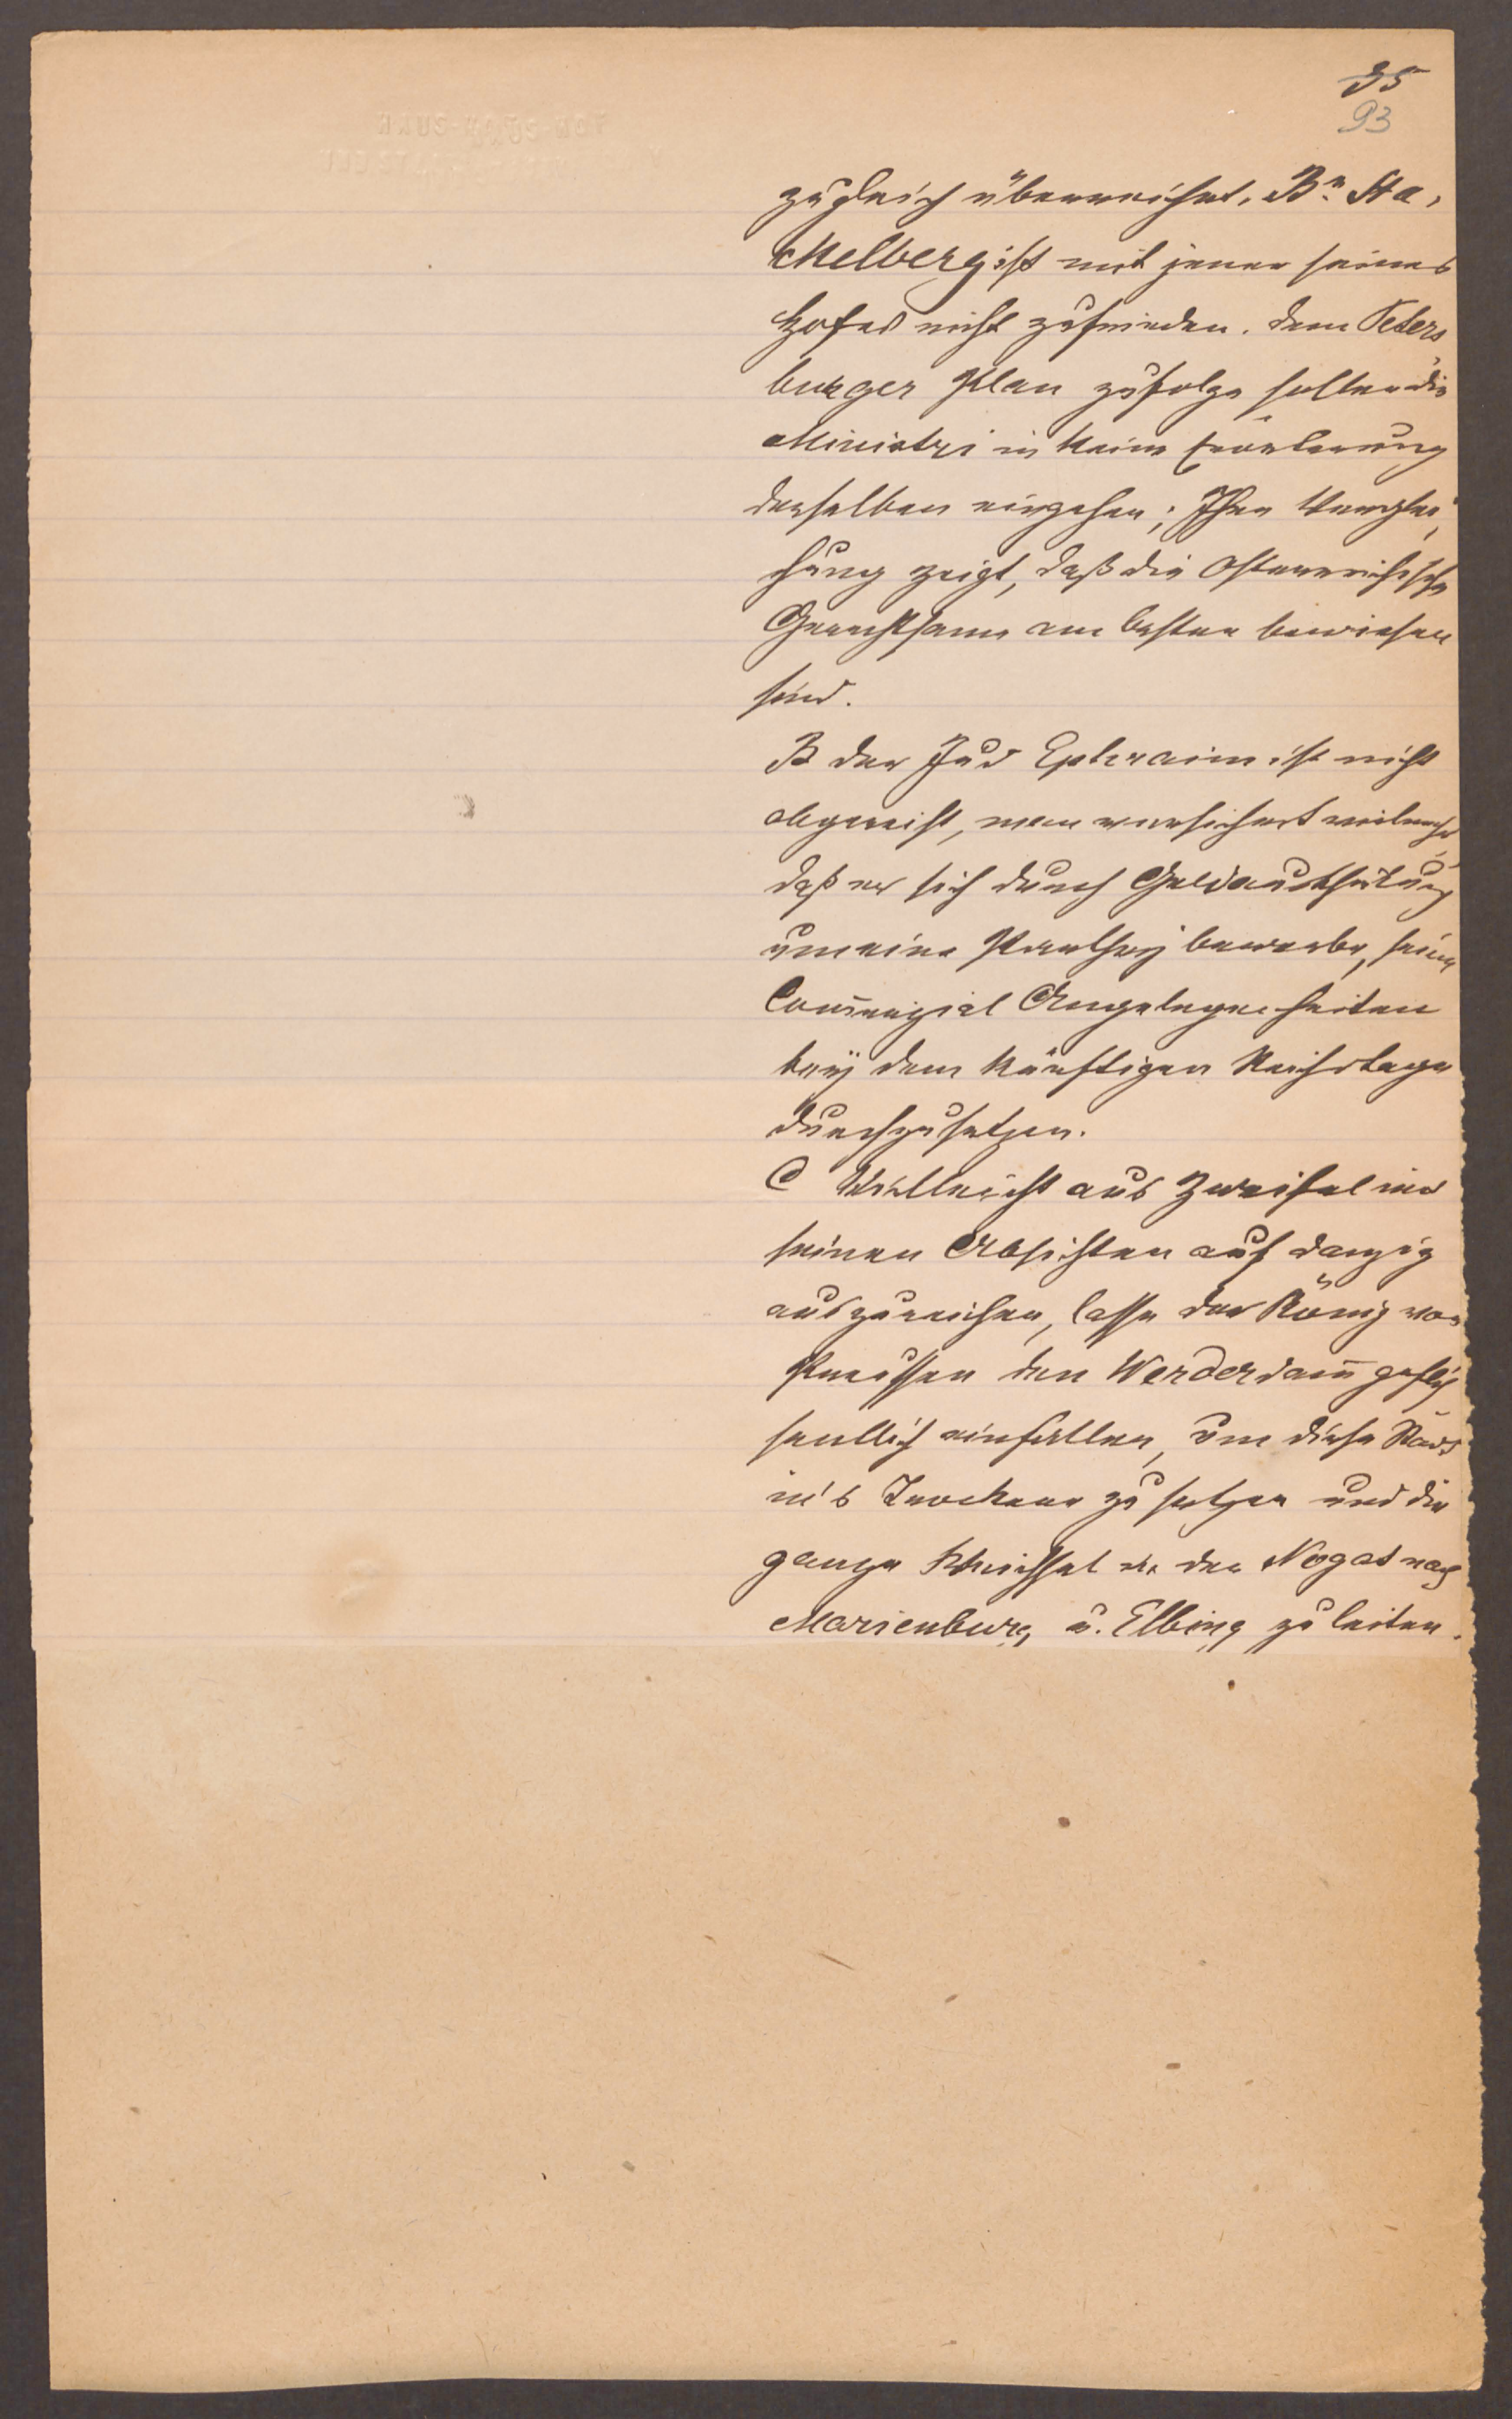 35
93
zugleich überreichet, Bn. Sta,
ckelberg ist mit jener seines
Hofes nicht zufrieden. dem Peters
burger Plan zufolge sollen die
Ministri in keine Erörterung
derselben eingehen; Ihre Verglei,
chung zeigt, daß die Osterreichische
Gerechtsame am besten bewiesen
sind.
B der Jud Ephraim ist nicht
abgereist, man versichert vielmehr,
daß er sich durch Geldaustheilung
um eine Parthey bewerbe, seine
Com̄erzial Angelegenheiten
beÿ dem künftigen Reichstage
durchzusetzen.
C Vielleicht aus Zweifel mit
seinen Absichten auf Danzig
auszureichen, lasse der König von
Preussen den Werderdam̄ gefliß
sentlich einfallen, um diese Stadt
in's Trockene zu setzen und die
ganze Weichsel in der Nogat nach
Marienburg u. Elbing zu leiten.